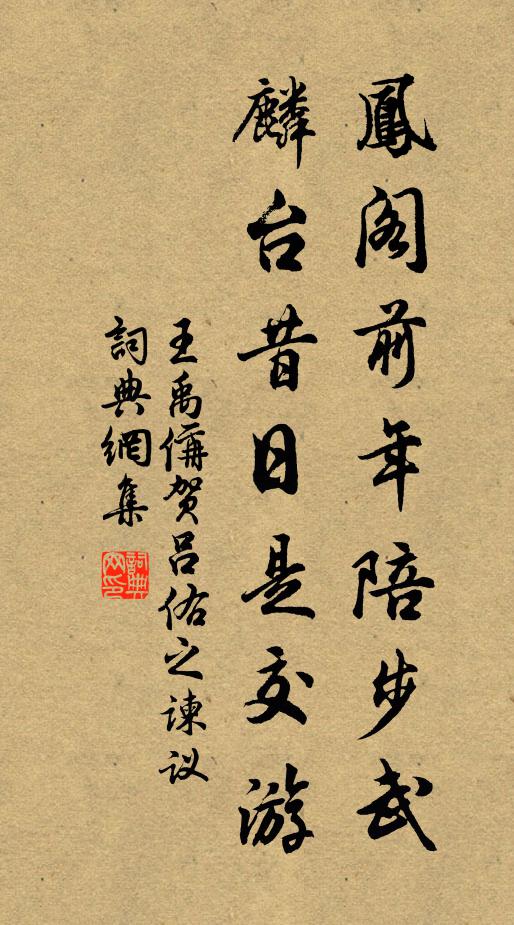 鳳阁前年陪步武
麟台昔日是交游
王禹偁贺吕佑之谏议
詞典網集
詞典网印